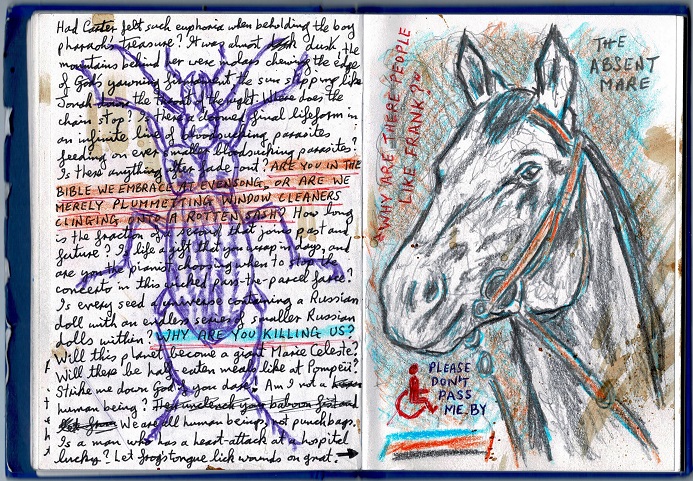 Had Carter felt such euphoria when beholding the boy
pharaoh's treasure? It was almost dusk, the
mountains behind her were molars chewing the edge
of God's yawning firmament the sun slipping like
Jonah down the throat of the night. Where does the
chain stop? Is there a doomed final lifeform in
an infinite line of bloodsucking parasites
feeding on ever smaller bloodsucking parasites?
Is there anything after fade-out? ARE YOU IN THE
BIBLE WE EMBRACE AT EVENSONG, OR ARE WE
MERELY PLUMMETTING WINDOW CLEANERS
CLINGING ONTO A ROTTEN SASH? How long
is the fraction of a second that joins past and
future? Is life a gift that you wrap in days, and
are you the pianist choosing when to stop the
concerto in this wicked pass-the-parcel farce?
Is every seed a universe containing a Russian
doll with an endless series of smaller Russian
dolls within? WHY ARE YOU KILLING US?
Will this planet become a giant Marie Celeste?
Will there be half eaten meals like at Pompeii?
Strike me down God if you dare! Am I not a
human being? Hey unclench you baboon fist and
We are all human beings, not punchbags.
Is a man who has a heart-attack at a hospital
lucky? Let frog's tongue lick wounds on gnat.
"WHY ARE THERE PEOPLE
LIKE FRANK?"
THE
ABSENT
MARE
PLEASE
DON'T
PASS
ME BY